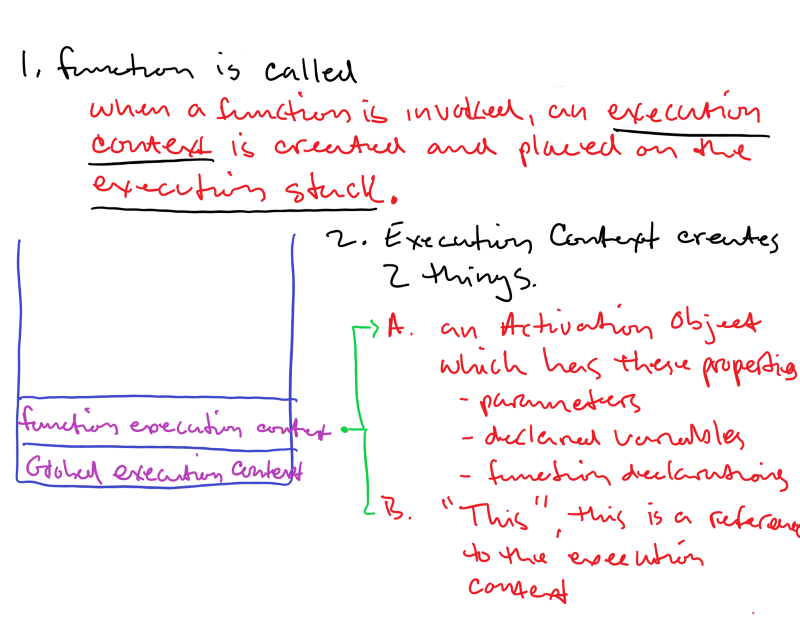 1. function is called
when a function is invoked, an execution
context is created and placed on the
execution stack.
2. Execution Context creates
2 things.
A. an Activation Object
which has these properties
- parameters
- declared variables
- function declarations
B. "This", this is a reference
to the execution
context
function execution context
Global execution context